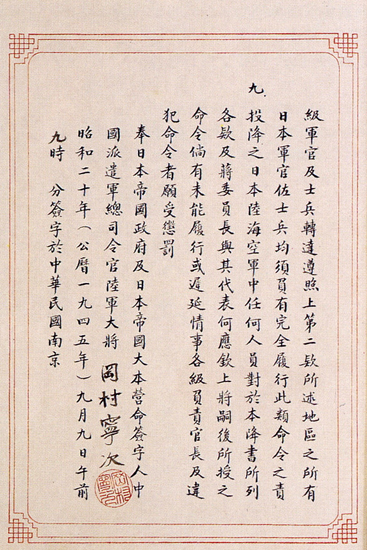 級軍官及士兵轉達遵照上第二欵所述地區之所有
日本軍官佐士兵均須負有完全履行此類命令之責
九.
投降之日本陸海空軍中任何人員對於本降書所列
各欵及蔣委員長與其代表何應欽上將嗣後所授之
命令倘有未能履行或遲延情事各級負責官長及違
犯命令者願受懲罰
奉日本帝國政府及日本帝國大本營命簽字人中
國派遣軍總司令官陸軍大將 岡村寧次
昭和二十年(公曆一九四五年)九月九日午前
九時 分簽字於中華民國南京